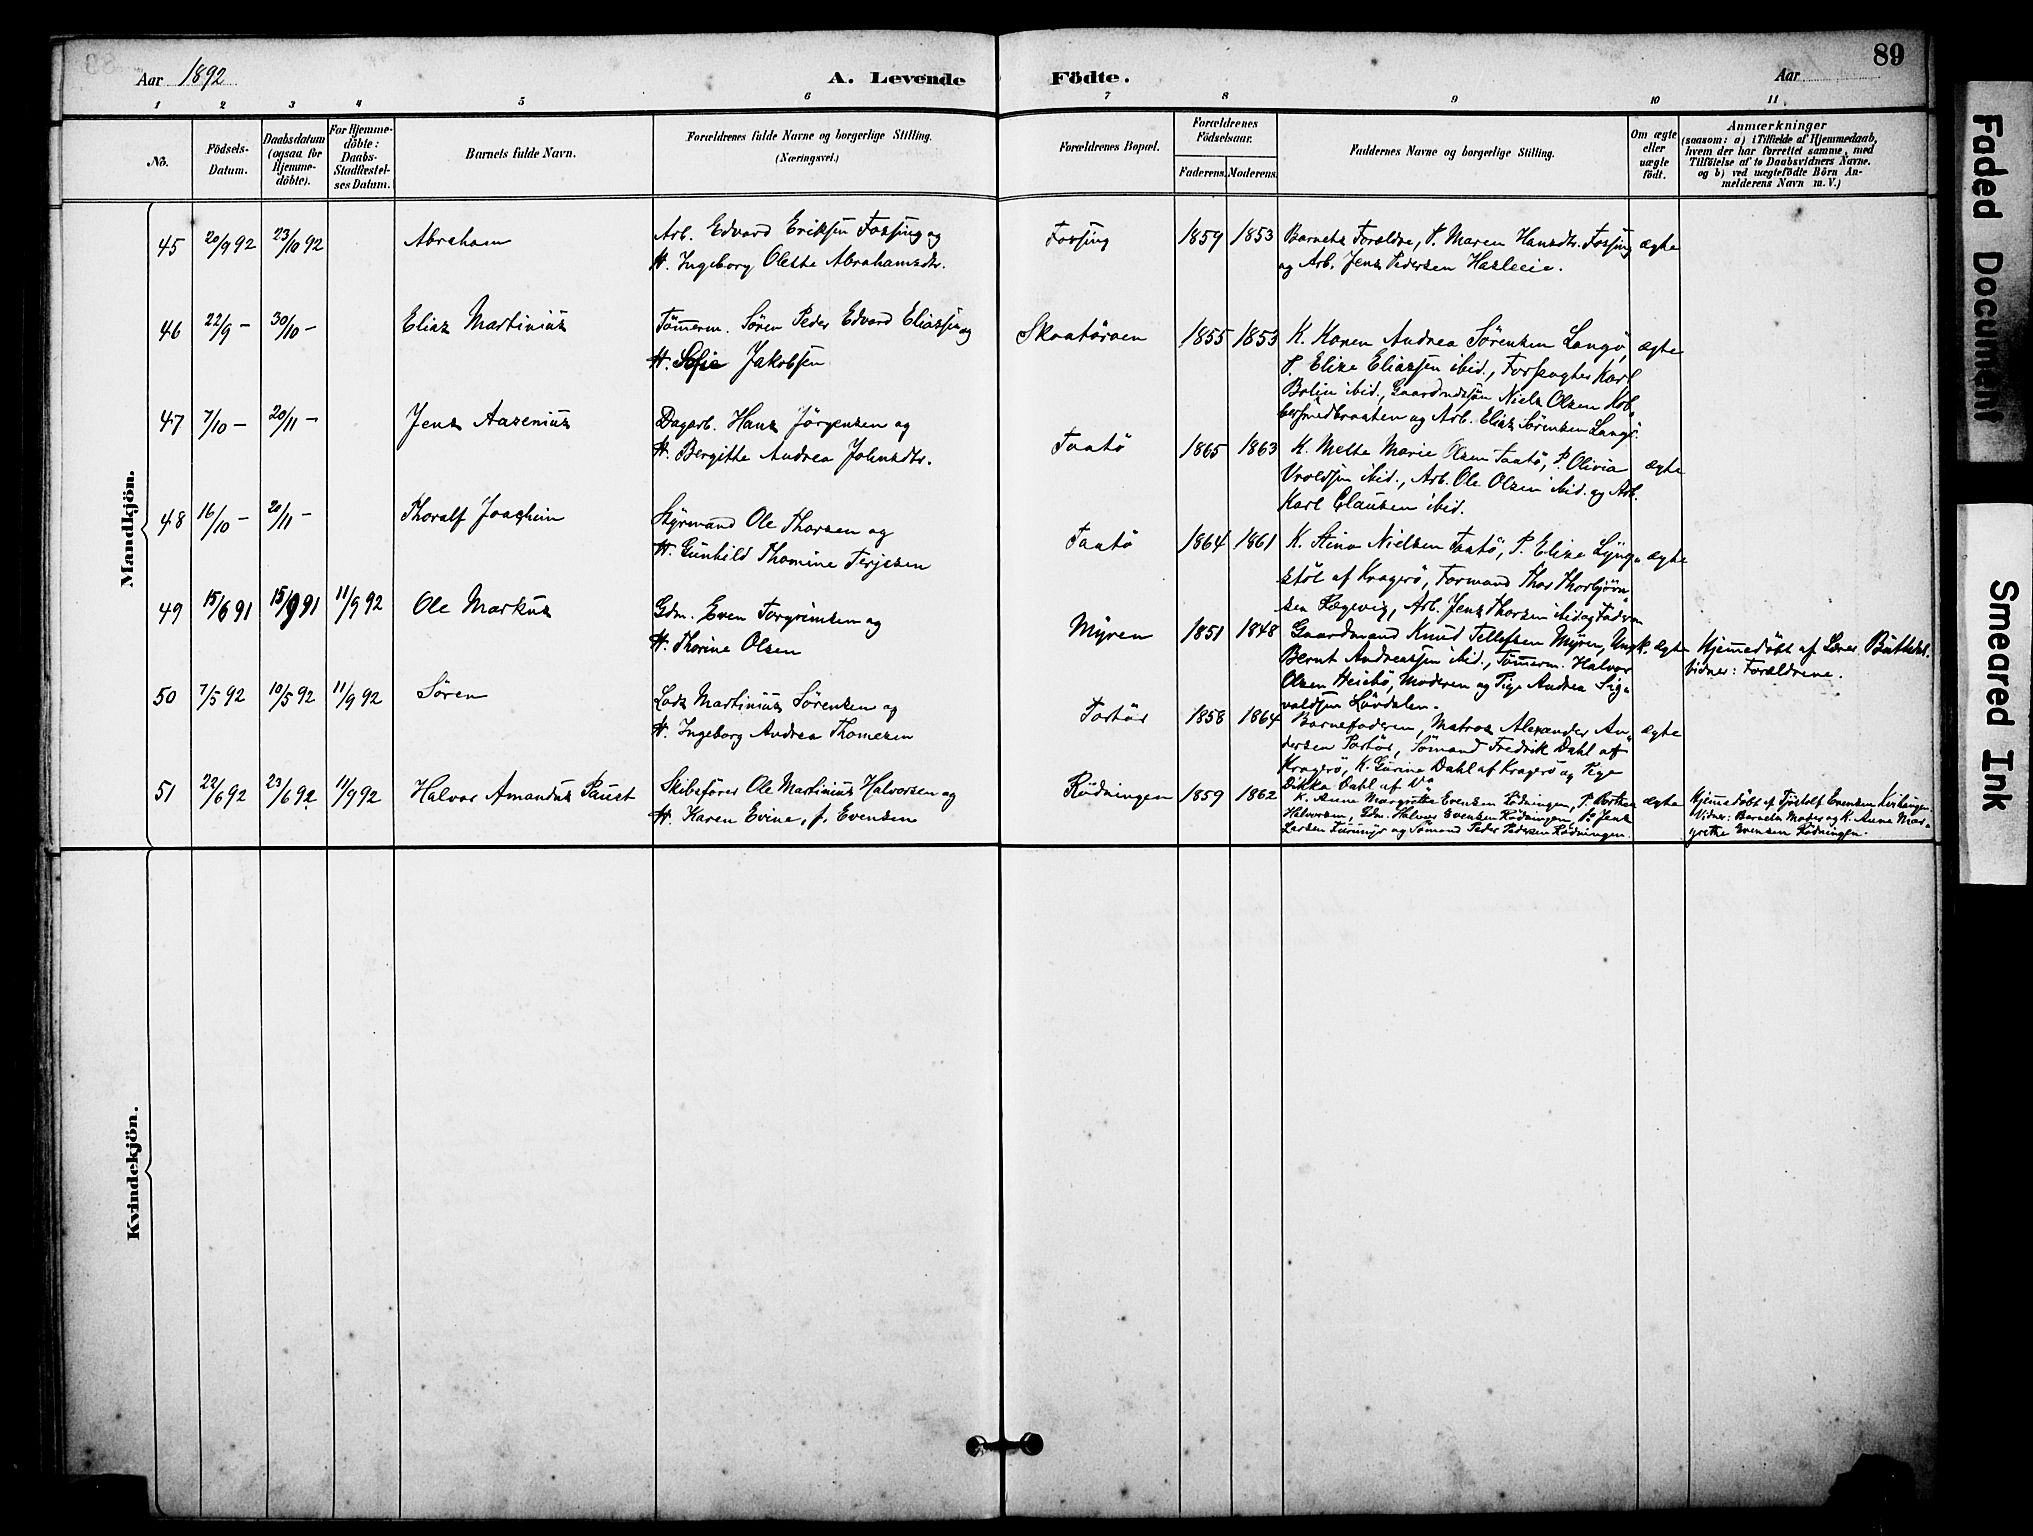 89
Aar 1892
A. Levende
Födte.
Aar
1 2 3 4 5 6 7 8 9 10 11
No.
Födsels-
Datum.
Daabsdatum
(ogsaa for
Hjemme-
döbte).
For Hjemme-
döbte:
Daabs-
Stadfæstel-
ses Datum.
Barnets fulde Navn.
Forældrenes fulde Navne og borgerlige Stilling.
(Næringsvei.)
Forældrenes Bopæl.
Forældrenes
Födselsaar.
Faderens. Moderens.
Faddernes Navne og borgerlige Stilling.
Om ægte
eller
uægte
födt.
Anmærkninger
(saasom: a) i Tilfælde af Hjemmedaab,
hvem der har forrettet samme, med
Tilföielse af to Daabsvidners Navne.
og b) ved uægtefödte Börn An-
melderens Navn m. V.)
Mandkjön.
45 20/9 92 23/10 92 Abraham
Arb. Edvard Eriksen Fossing og
H. Ingeborg Olette Abrahamsdtr.
Fossing 1859 1853
Barnets Forældre, P. Maren Hansdtr. Fossing
og Arb. Jens Pedersen Hasleeie.
ægte
46 22/9 – 30/10 – Elias Martinius
Tömmerm. Sören Peder Edvard Eliassen og
H. Sofie Jakobsen
Skaatöroen 1855 1853
K. Karen Andrea Sörensen Langö,
P. Elise Eliassen ibid., Forpagter Karl
Bolin ibid., Gaardmdssön Niels Olsen Kob-
bersmedbraaten og Arb. Elias Sörensen Langö.
ægte
47 7/10 – 20/11 – Jens Aasenius
Dagarb. Hans Jörgensen og
H. Bergitte Andrea Johnsdtr.
Taatö 1865 1863
K. Melte Marie Olsen Taatö, P. Olivia
Vroldsen ibid., Arb. Ole Olsen ibid. og Arb.
Karl Clausen ibid.
ægte
48 16/10 – 20/11 – Thoralf Joachim
Styrmand Ole Thorsen og
H. Gunhild Thomine Terjesen
Taatö 1864 1861
K. Stina Nielsen Taatö, P. Elise Lyng-
stöl af Kragerö, Formand Thor Thorbjörn-
sen Rögevig, Arb. Jens Thorsen ibid og Faderen
ægte
49 15/6 91 15/9 91 11/9 92 Ole Markus
Gdm. Even Torgrimsen og
H. Thorine Olsen
Myren 1851 1848
Gaardmand Knud Tellefsen Myren, Ungk.
Bernt Andreassen ibid., Tömmerm. Halvor
Olsen Heistö, Moderen og Pige Andrea Sig-
valdsen Lövdalen.
ægte
Hjemmedöbt af Lærer Buttedal.
Vidner: Forældrene.
50 7/5 92 10/5 92 11/9 92 Sören
Lods Martinius Sörensen og
H. Ingeborg Andrea Thomesen
Portör 1858 1864
Barnefaderen, Matros Alexander An-
dersen Portör, Sömand Fredrik Dahl af
Kragerö, K. Gurine Dahl af Kragerö og Pige
Dikka Dahl af Do
ægte
51 22/6 92 23/6 92 11/9 92 Halvor Amandus Paust
Skibsförer Ole Martinius Halvorsen og
H. Karen Evine, f. Evensen
Rödningen 1859 1862
K. Anne Margrethe Evensen Rödningen, P. Berthe
Halvorsen, Gdm. Halvor Evensen Rödningen, Do Jens
Larsen Furumyr og Sömand Peder Pedersen Rödningen.
ægte
Hjemmedöbt af Tjöstolf Evensen Kirkeng.
Vidner: Barnets Moder og K. Anne Mar-
grethe Evensen Rödningen.
Kvindekjön.
Faded Document
Smeared Ink